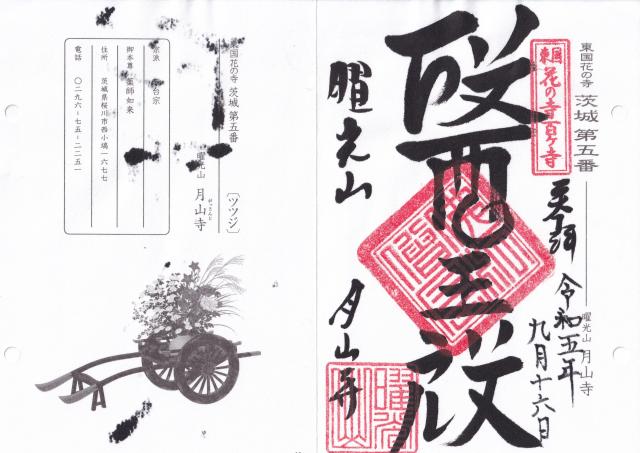 東国花の寺 茨城 第五番
曜光山 月山寺
東国
花の寺百ヶ寺
奉拝 令和五年
九月十六日
醫王殿
曜光山
月山寺
東国花の寺 茨城 第五番
〔ツツジ〕
曜光山 月山寺
がっさんじ
宗派 天台宗
御本尊 薬師如来
住所 茨城県桜川市西小塙一六七七
電話 〇二九六-七五-二二五一